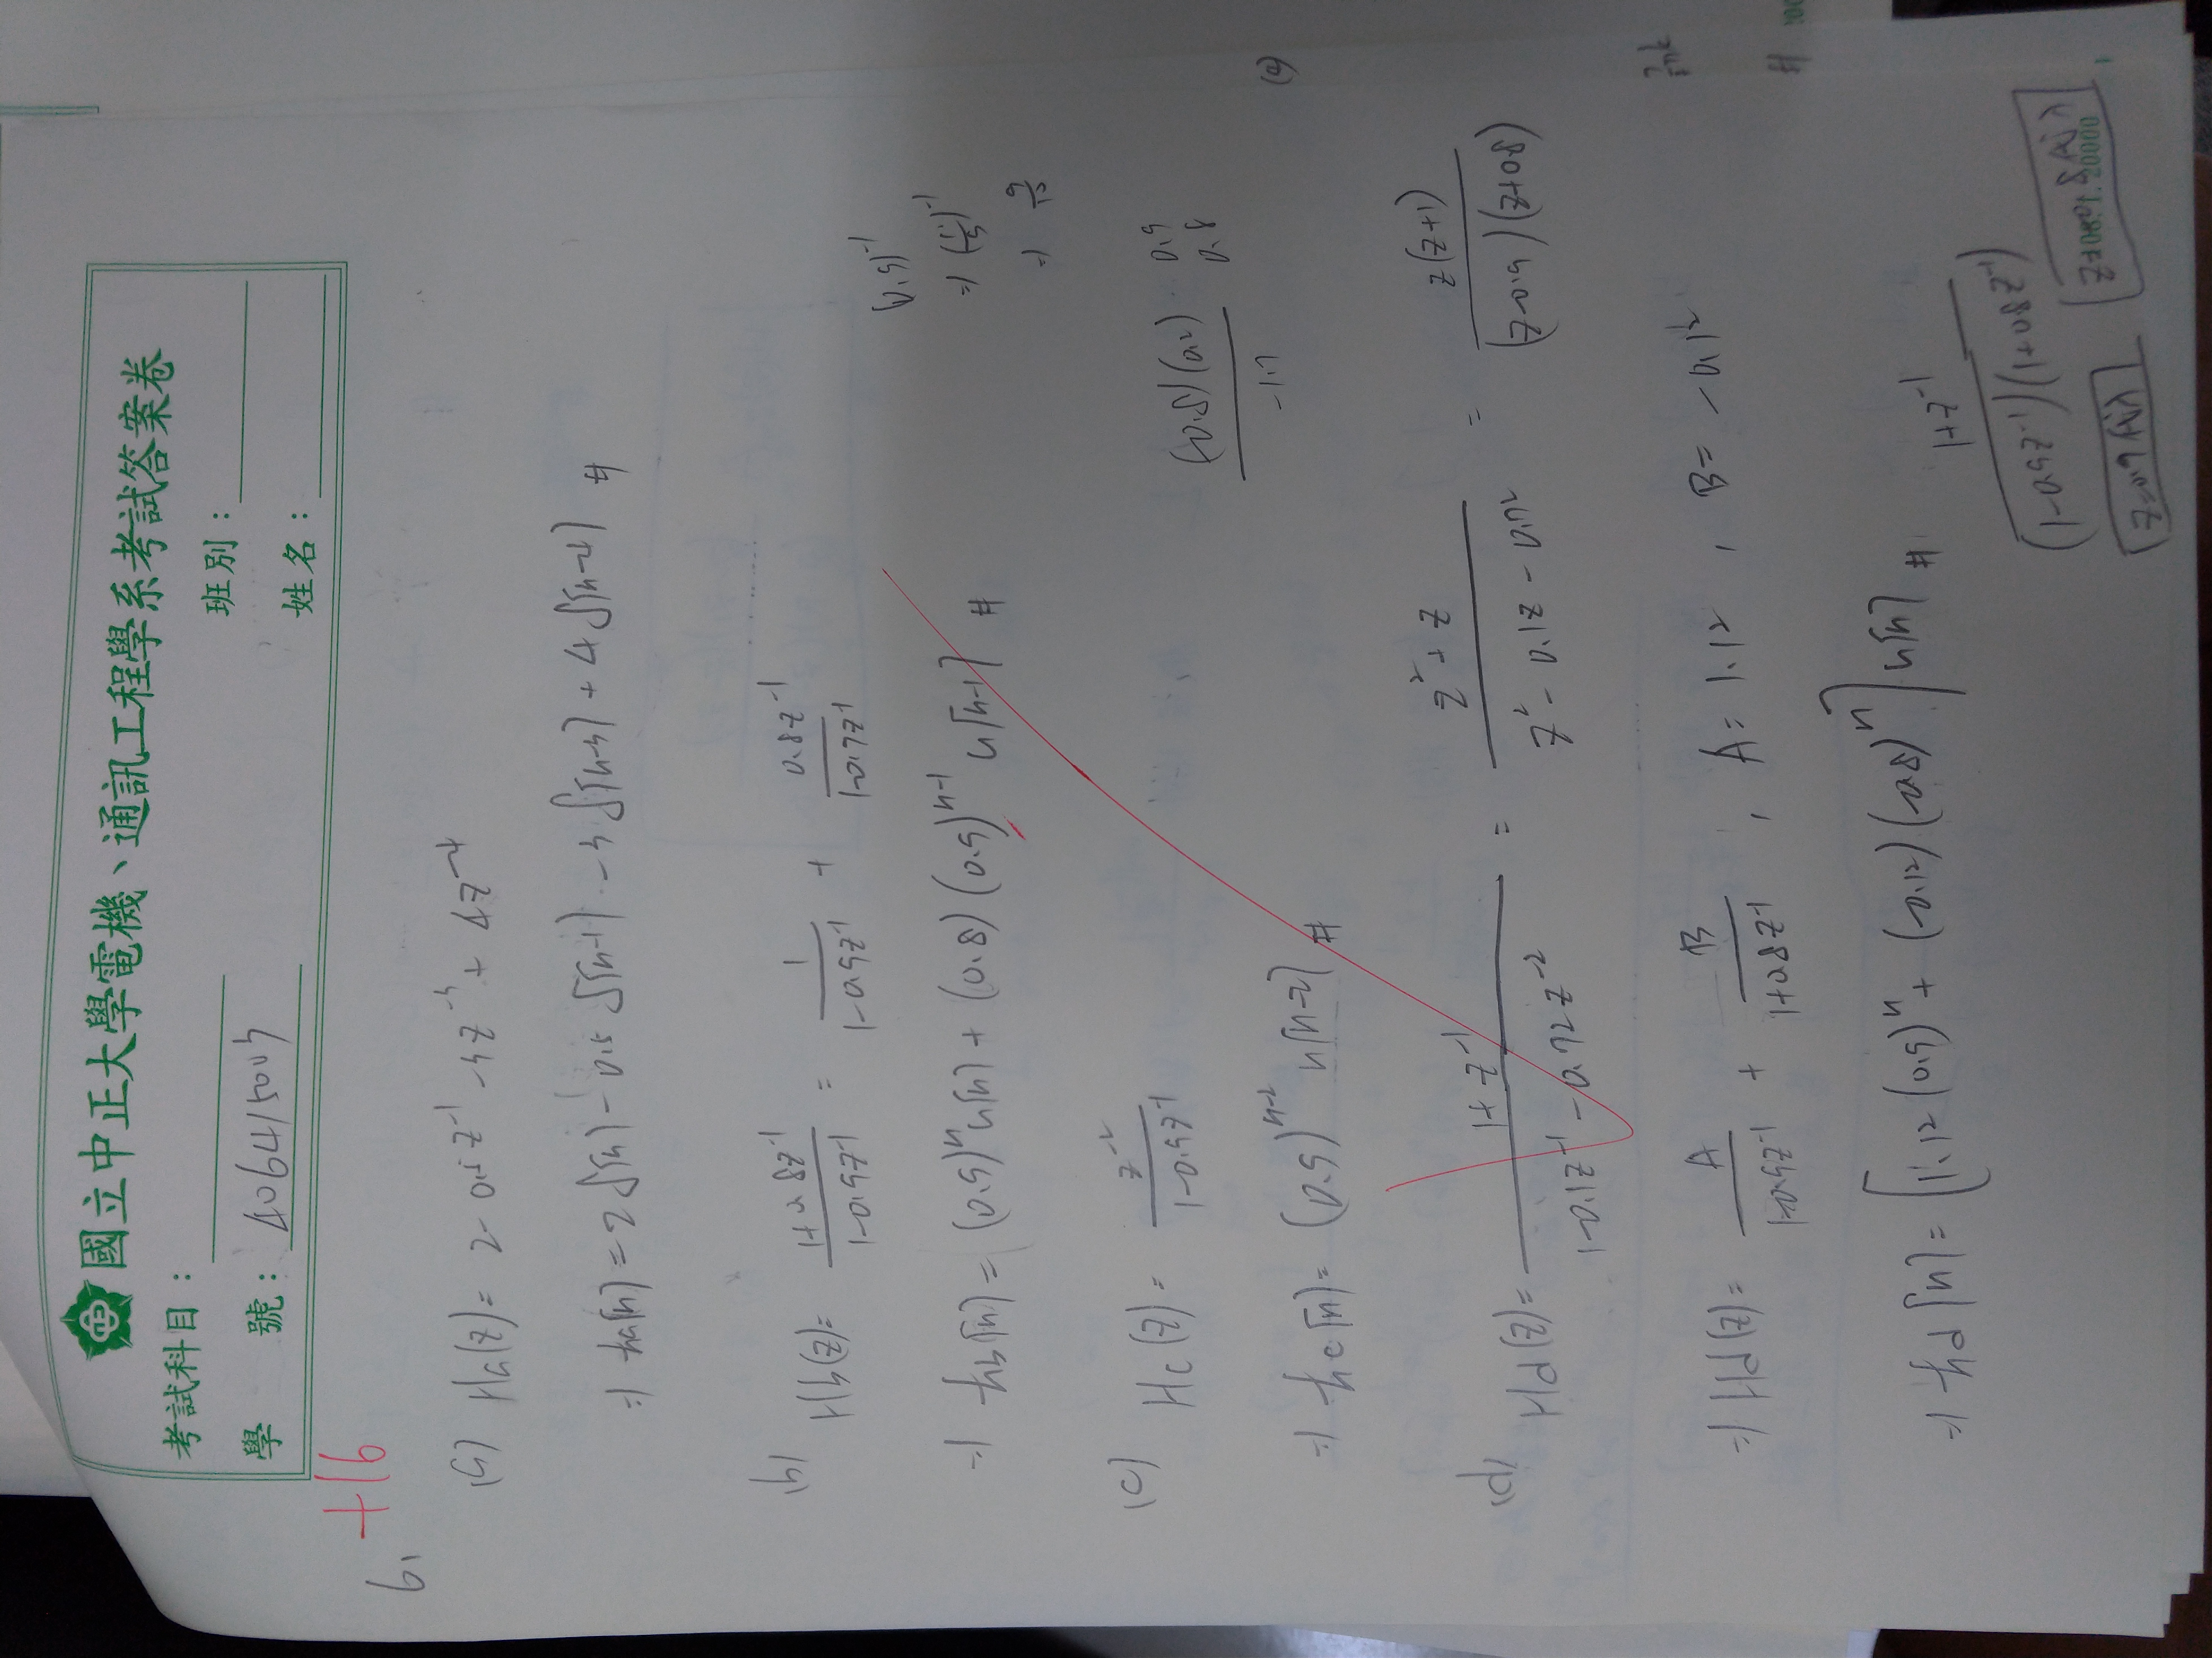 國立中正大學電機、通訊工程學系考試答案卷
考試科目：
班別：
學 號：406415003
姓名：
+16
6.
(a) Ha(z)= 2-0.5z⁻¹ -3z⁻³ + 4z⁻⁴
⇒ ha[n] = 2δ[n] - 0.5 δ[n-1] - 3 δ[n-3] + 4 δ[n-4] #
(b) Hb(z)= (1+0.8z⁻¹)/(1-0.9z⁻¹) = 1/(1-0.9z⁻¹) + 0.8z⁻¹/(1-0.9z⁻¹)
⇒ hb[n] = (0.9)ⁿ u[n] + (0.8)(0.9)ⁿ⁻¹ u[n-1] #
(0.9)⁻¹
⇒ 9/10
(c) Hc(z)= z⁻²/(1-0.9z⁻¹)
(-0.8)(0.2)/-1.7
0.9
0.8
⇒ hc[n]= (0.9)ⁿ⁻² u[n-2] #
(e)
(d) Hd(z)= (1+z⁻¹)/(1-0.1z⁻¹-0.72z⁻²) = (z²+z)/(z²-0.1z-0.72) = z(z+1)/((z-0.9)(z+0.8))
⇒ Hd(z)= A/(1-0.9z⁻¹) + B/(1+0.8z⁻¹) , A= 1.12 , B= -0.12
#
⇒ hd[n]= [1.12(0.9)ⁿ + (-0.12)(-0.8)ⁿ] u[n] #
(1+z⁻¹)/((1-0.9z⁻¹)(1+0.8z⁻¹))
z=0.9代入
z=-0.8代入
108.1.20000